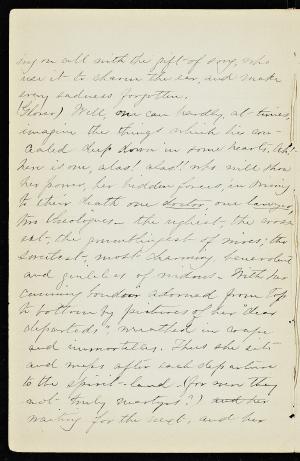 ing on call with the gift of song, who
use it to charm the ear, and make
every sadness forgotten.
Glover) Well, one can hardly, at times,
imagine the things which lie con-
cealed deep down in some hearts, Ah!
here is one, alas! alas!! who will show
her power, her hidden forces, in driving
to their death one doctor, one lawyer,
two theologues — the ugliest, the cross-
est, the grumblingest of wives; the
sweetest, most charming, benevolent
and guileless of widows — With her
cunning boudoir adorned from top
to bottom by pictures of her "dear
departeds", wreathed in crape
and immortelles. There she sits
and weeps after each departure
to the spirit-land. (for were they
not truly martyrs?) and her
waiting for the next, and her